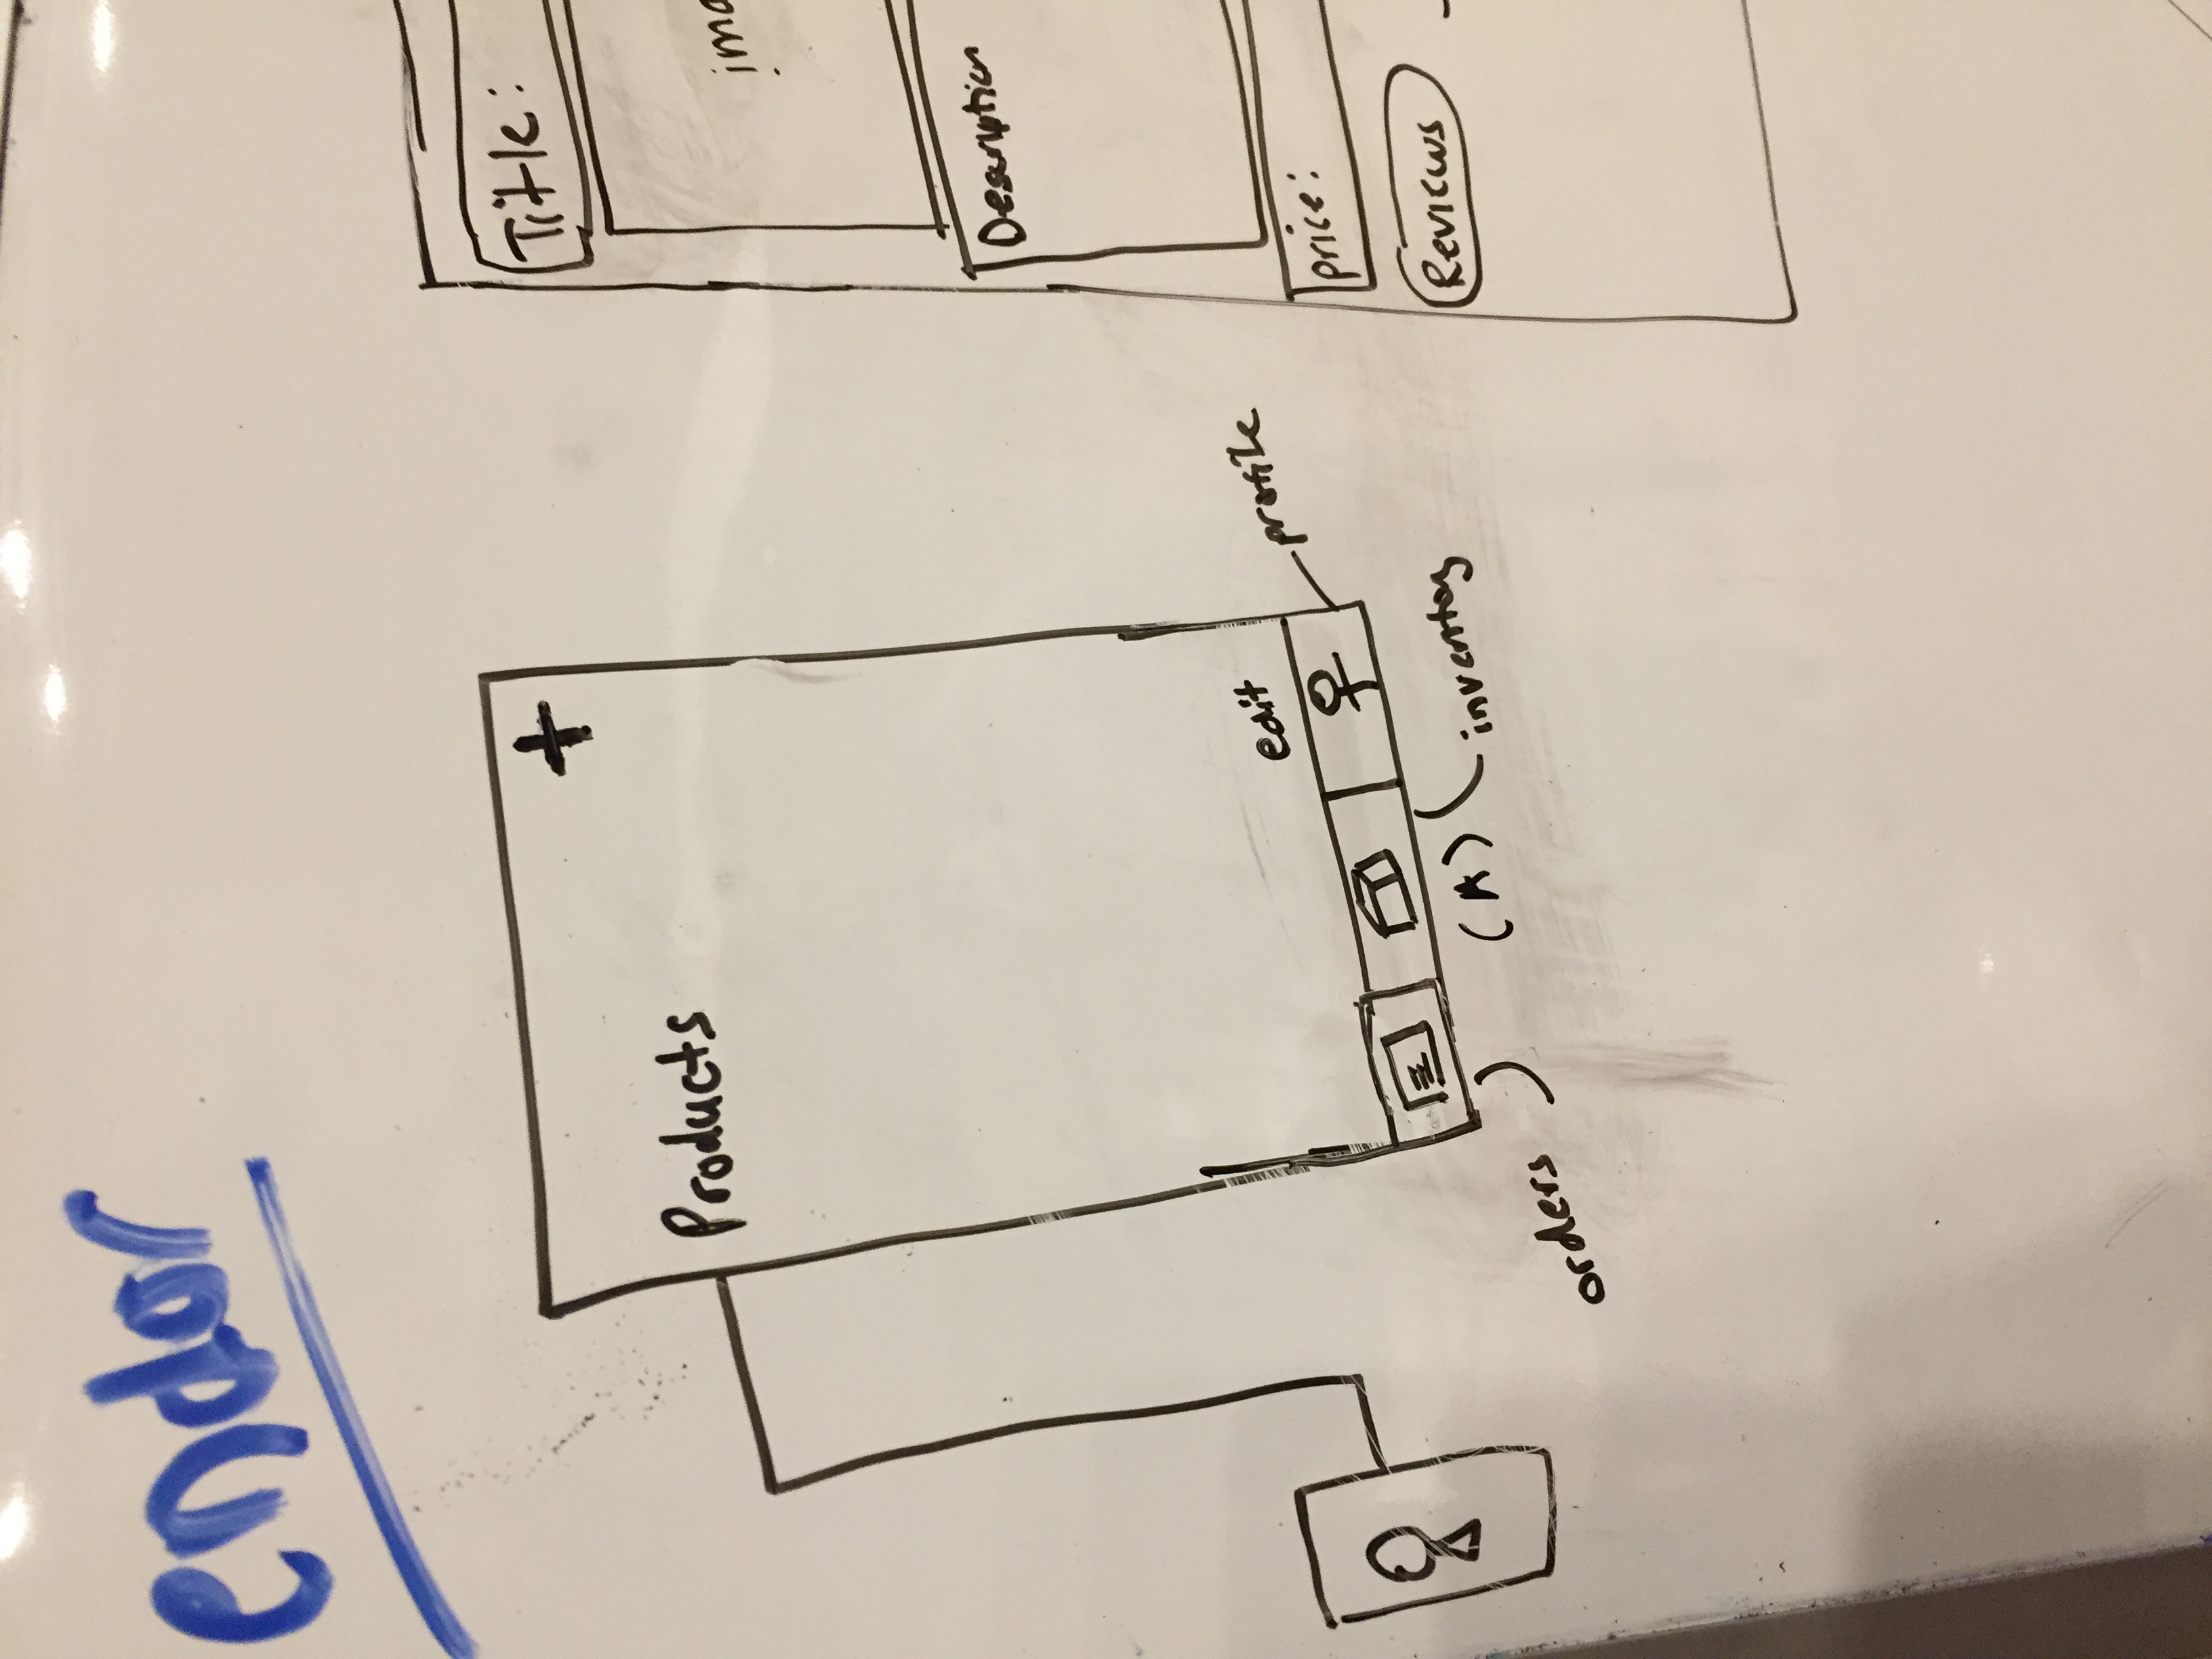 endor
+
Products
edit
profile
(A)
inventory
orders
Title:
ima
Description
price:
Reviews